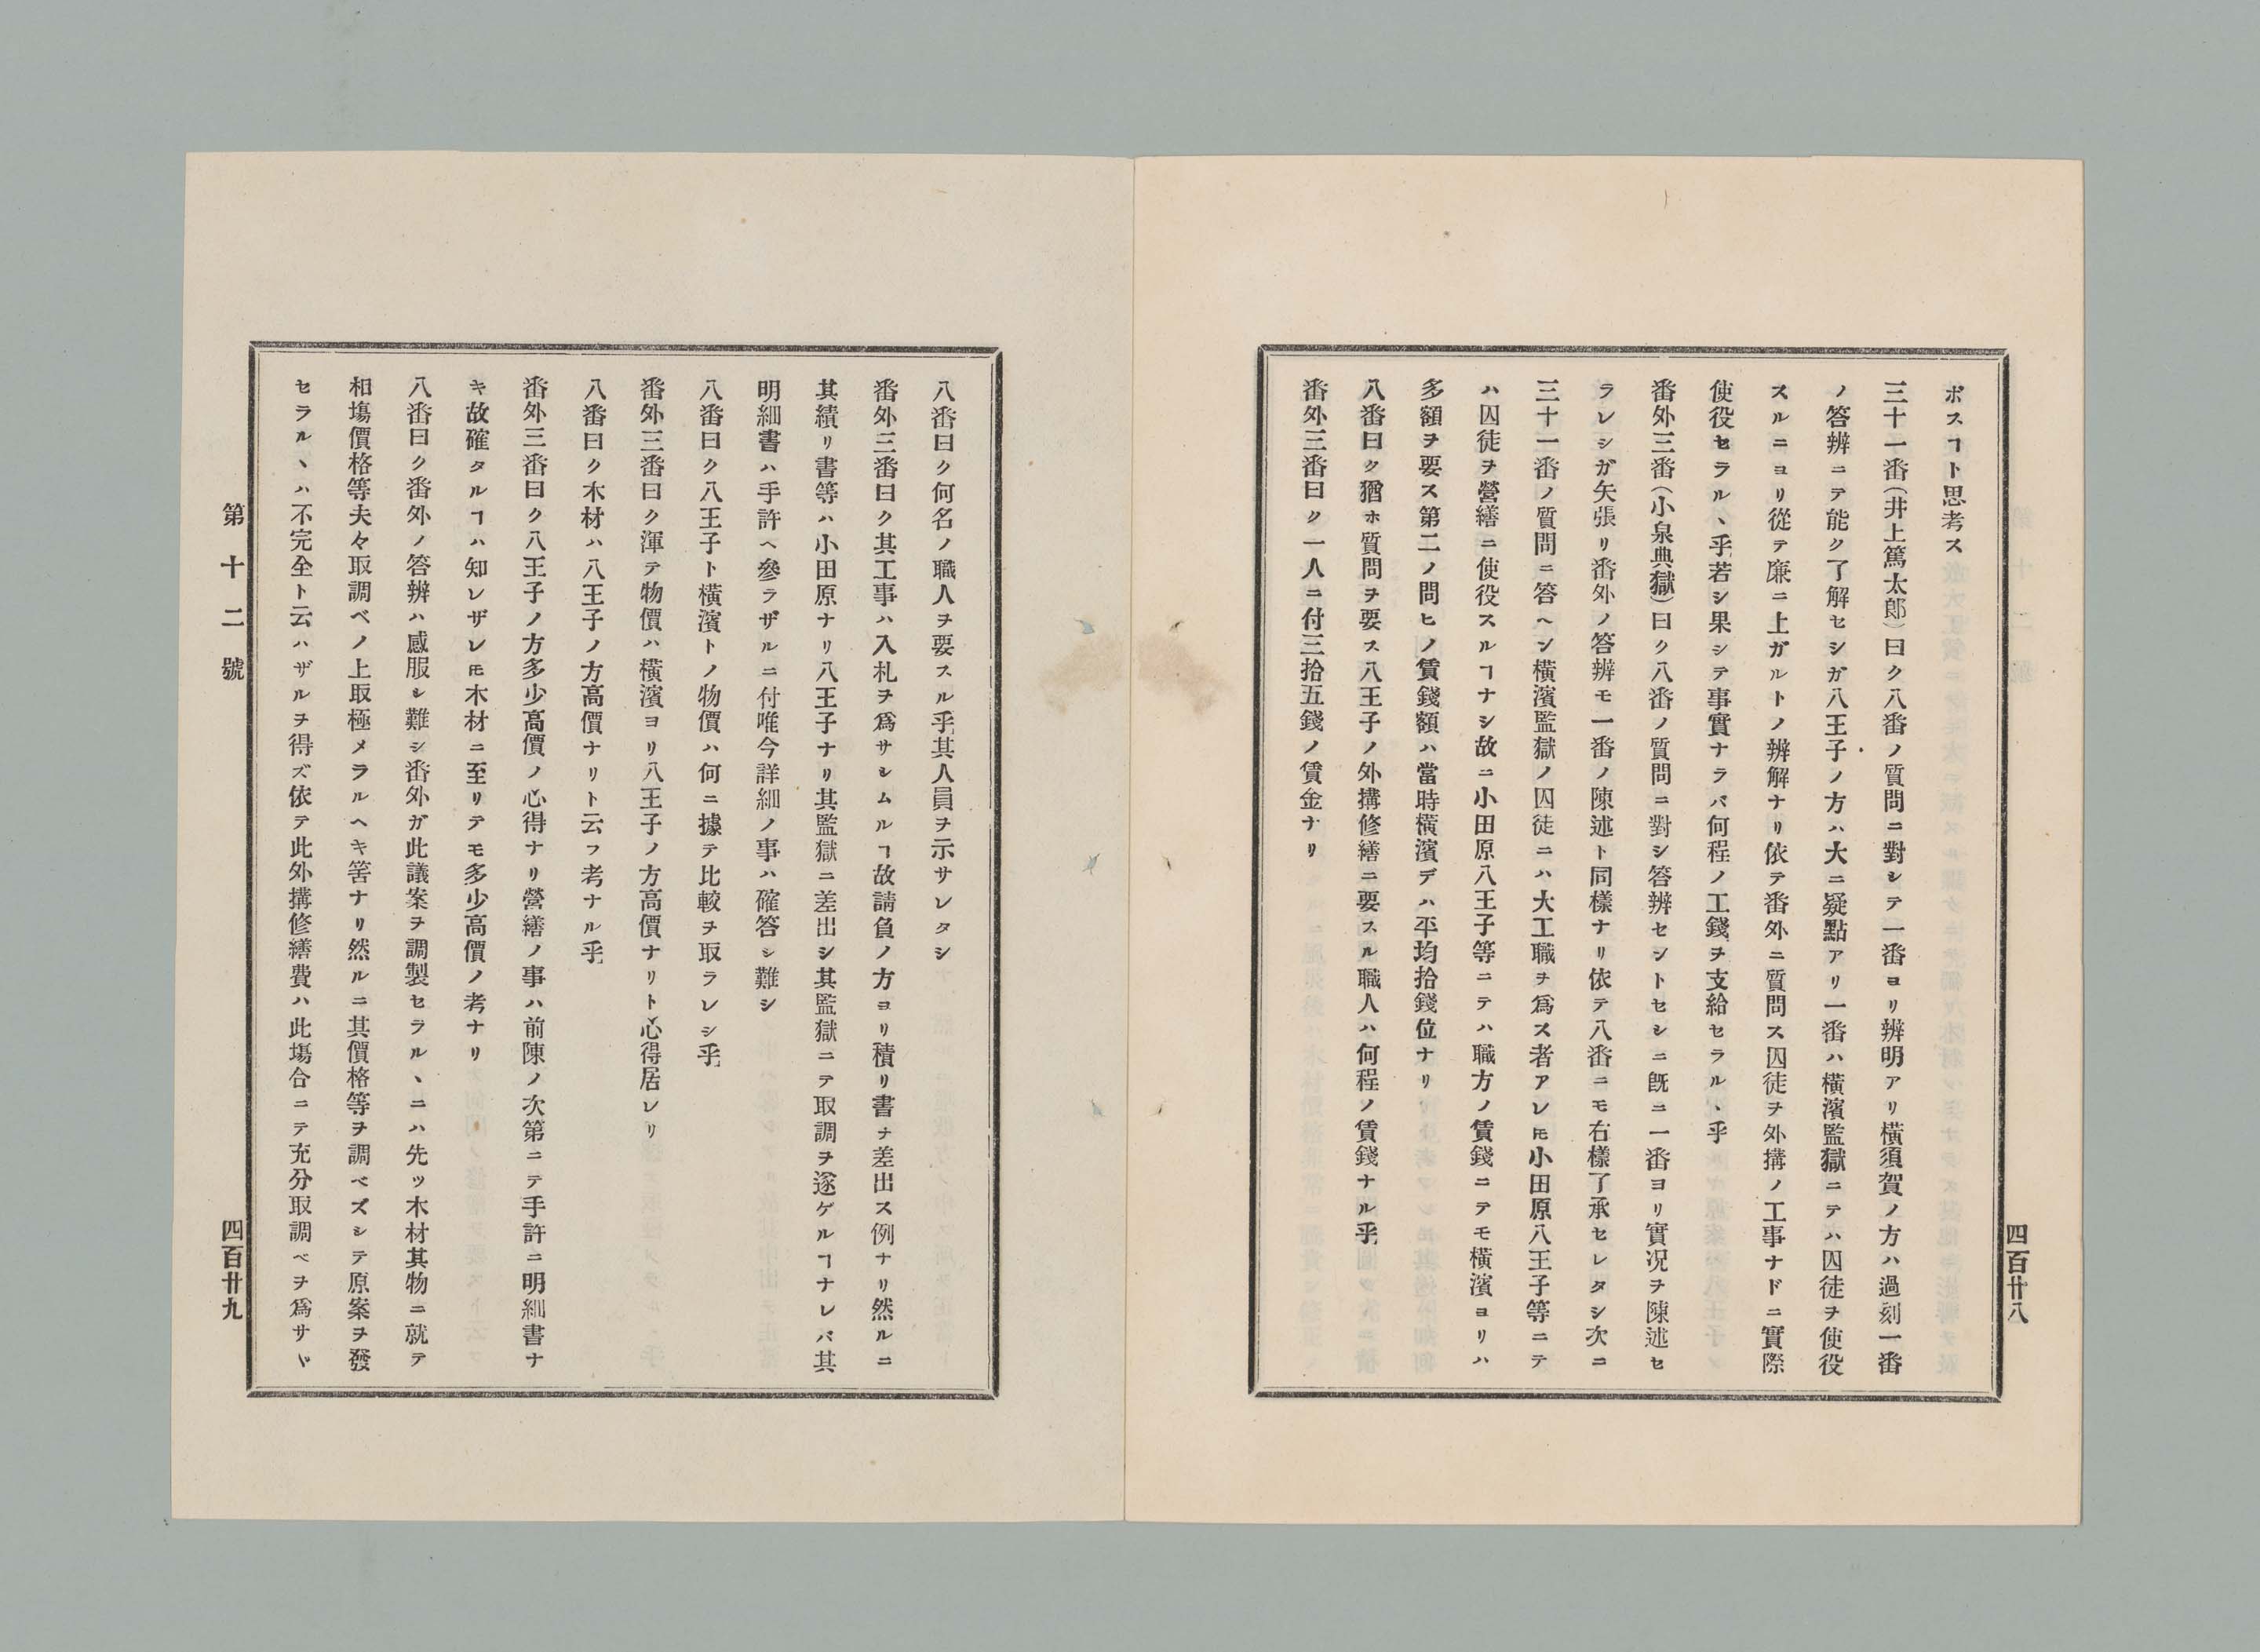 四百廿八
ボスヿト思考ス
三十一番（井上篤太郎）曰ク八番ノ質問ニ對シテ一番ヨリ辨明アリ横須賀ノ方ハ過刻一番
ノ答辨ニテ能ク了解セシガ八王子ノ方ハ大ニ疑點アリ一番ハ横濱監獄ニテハ囚徒ヲ使役
スルニヨリ從テ廉ニ上ガルトノ辨解ナリ依テ番外ニ質問ス囚徒ヲ外搆ノ工事ナドニ實際
使役セラルヽ乎若シ果シテ事實ナラバ何程ノ工錢ヲ支給セラルヽ乎
番外三番（小泉典獄）曰ク八番ノ質問ニ對シ答辨セントセシニ既ニ一番ヨリ實况ヲ陳述セ
ラレシガ矢張リ番外ノ答辨モ一番ノ陳述ト同樣ナリ依テ八番ニモ右樣了承セレタシ次ニ
三十一番ノ質問ニ答ヘン横濱監獄ノ囚徒ニハ大工職ヲ爲ス者アレ𪜈小田原八王子等ニテ
ハ囚徒ヲ營繕ニ使役スルヿナシ故ニ小田原八王子等ニテハ職方ノ賃錢ニテモ横濱ヨリハ
多額ヲ要ス第二ノ問ヒノ賃錢額ハ當時横濱デハ平均拾錢位ナリ
八番曰ク猶ホ質問ヲ要ス八王子ノ外搆修繕ニ要スル職人ハ何程ノ賃錢ナル乎
番外三番曰ク一人ニ付三拾五錢ノ賃金ナリ
八番曰ク何名ノ職人ヲ要スル乎其人員ヲ示サレタシ
番外三番曰ク其工事ハ入札ヲ爲サシムルヿ故請負ノ方ヨリ積リ書ヲ差出ス例ナリ然ルニ
其績リ書等ハ小田原ナリ八王子ナリ其監獄ニ差出シ其監獄ニテ取調ヲ遂ゲルヿナレバ其
明細書ハ手許ヘ參ラザルニ付唯今詳細ノ事ハ確答シ難シ
八番曰ク八王子ト横濱トノ物價ハ何ニ據テ比較ヲ取ラレシ乎
番外三番曰ク渾テ物價ハ横濱ヨリ八王子ノ方高價ナリト心得居レリ
八番曰ク木材ハ八王子ノ方高價ナリト云フ考ナル乎
番外三番曰ク八王子ノ方多少高價ノ心得ナリ營繕ノ事ハ前陳ノ次第ニテ手許ニ明細書ナ
キ故確タルヿハ知レザレ𪜈木材ニ至リテモ多少高價ノ考ナリ
八番曰ク番外ノ答辨ハ感服シ難シ番外ガ此議案ヲ調製セラルヽニハ先ツ木材其物ニ就テ
相塲價格等夫々取調ベノ上取極メラルヘキ筈ナリ然ルニ其價格等ヲ調ベズシテ原案ヲ發
セラルヽハ不完全ト云ハザルヲ得ズ依テ此外搆修繕費ハ此塲合ニテ充分取調ベヲ爲サヾ
第十二號
四百廿九